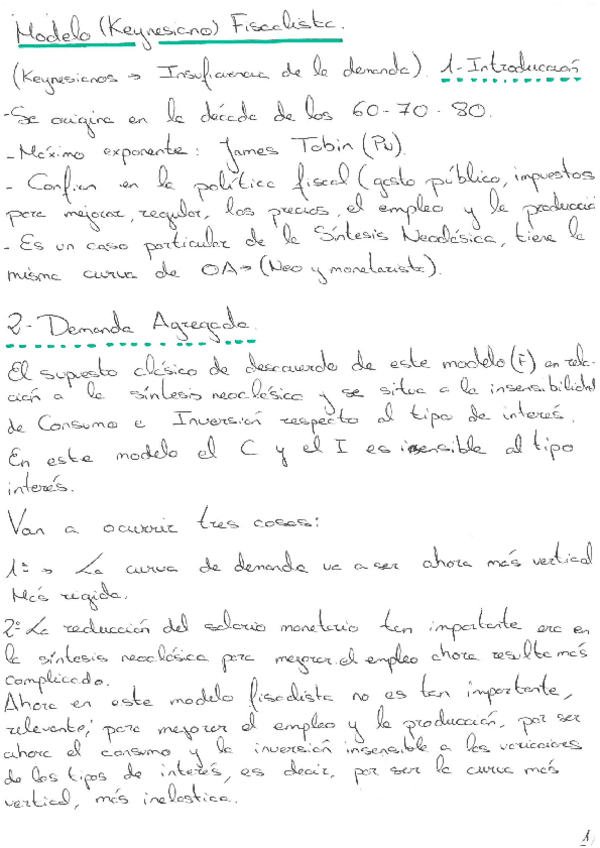 Modelo (Keynesiano) Fiscalista.
(Keynesianos → Insuficiencia de la demanda). 1-Introducción
-Se origina en la década de los 60-70-80.
-Máximo exponente: James Tobin (Pu).
- Confían en la política fiscal (gasto público, impuestos
para mejorar, regular, los precios, el empleo y la producció
- Es un caso particular de la Síntesis Neoclásica, tiene la
misma curva de OA→ (Neo y monetarista).
2- Demanda Agregada.
El supuesto clásico de desacuerdo de este modelo (F) en rela-
ción a la síntesis neoclásica y se situa a la insensibilidad
de Consumo e Inversión respecto al tipo de interés.
En este modelo el C y el I es insensible al tipo
interés.
Van a ocurrir tres cosas:
1º → La curva de demanda va a ser ahora más vertical
Más rígida.
2º La reducción del salario monetario tan importante era en
la síntesis neoclásica para mejorar el empleo ahora resulta más
complicado.
Ahora en este modelo fiscalista no es tan importante,
relevante, para mejorar el empleo y la producción, por ser
ahora el consumo y la inversión insensible a las variaciones
de los tipos de interés, es decir, por ser la curva más
vertical, más inelastica.
1